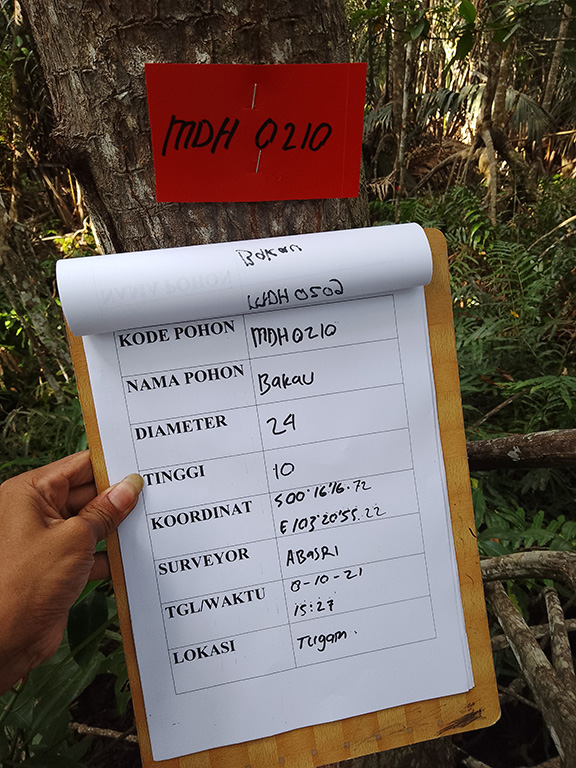 MDH 0210
Bakau
KODE POHON MDH0210
NAMA POHON Bakau
DIAMETER 24
TINGGI 10
KOORDINAT S00°16'16.72
E103°20'55.22
SURVEYOR ABASRI
TGL/WAKTU 8-10-21
15:27
LOKASI Tugam.